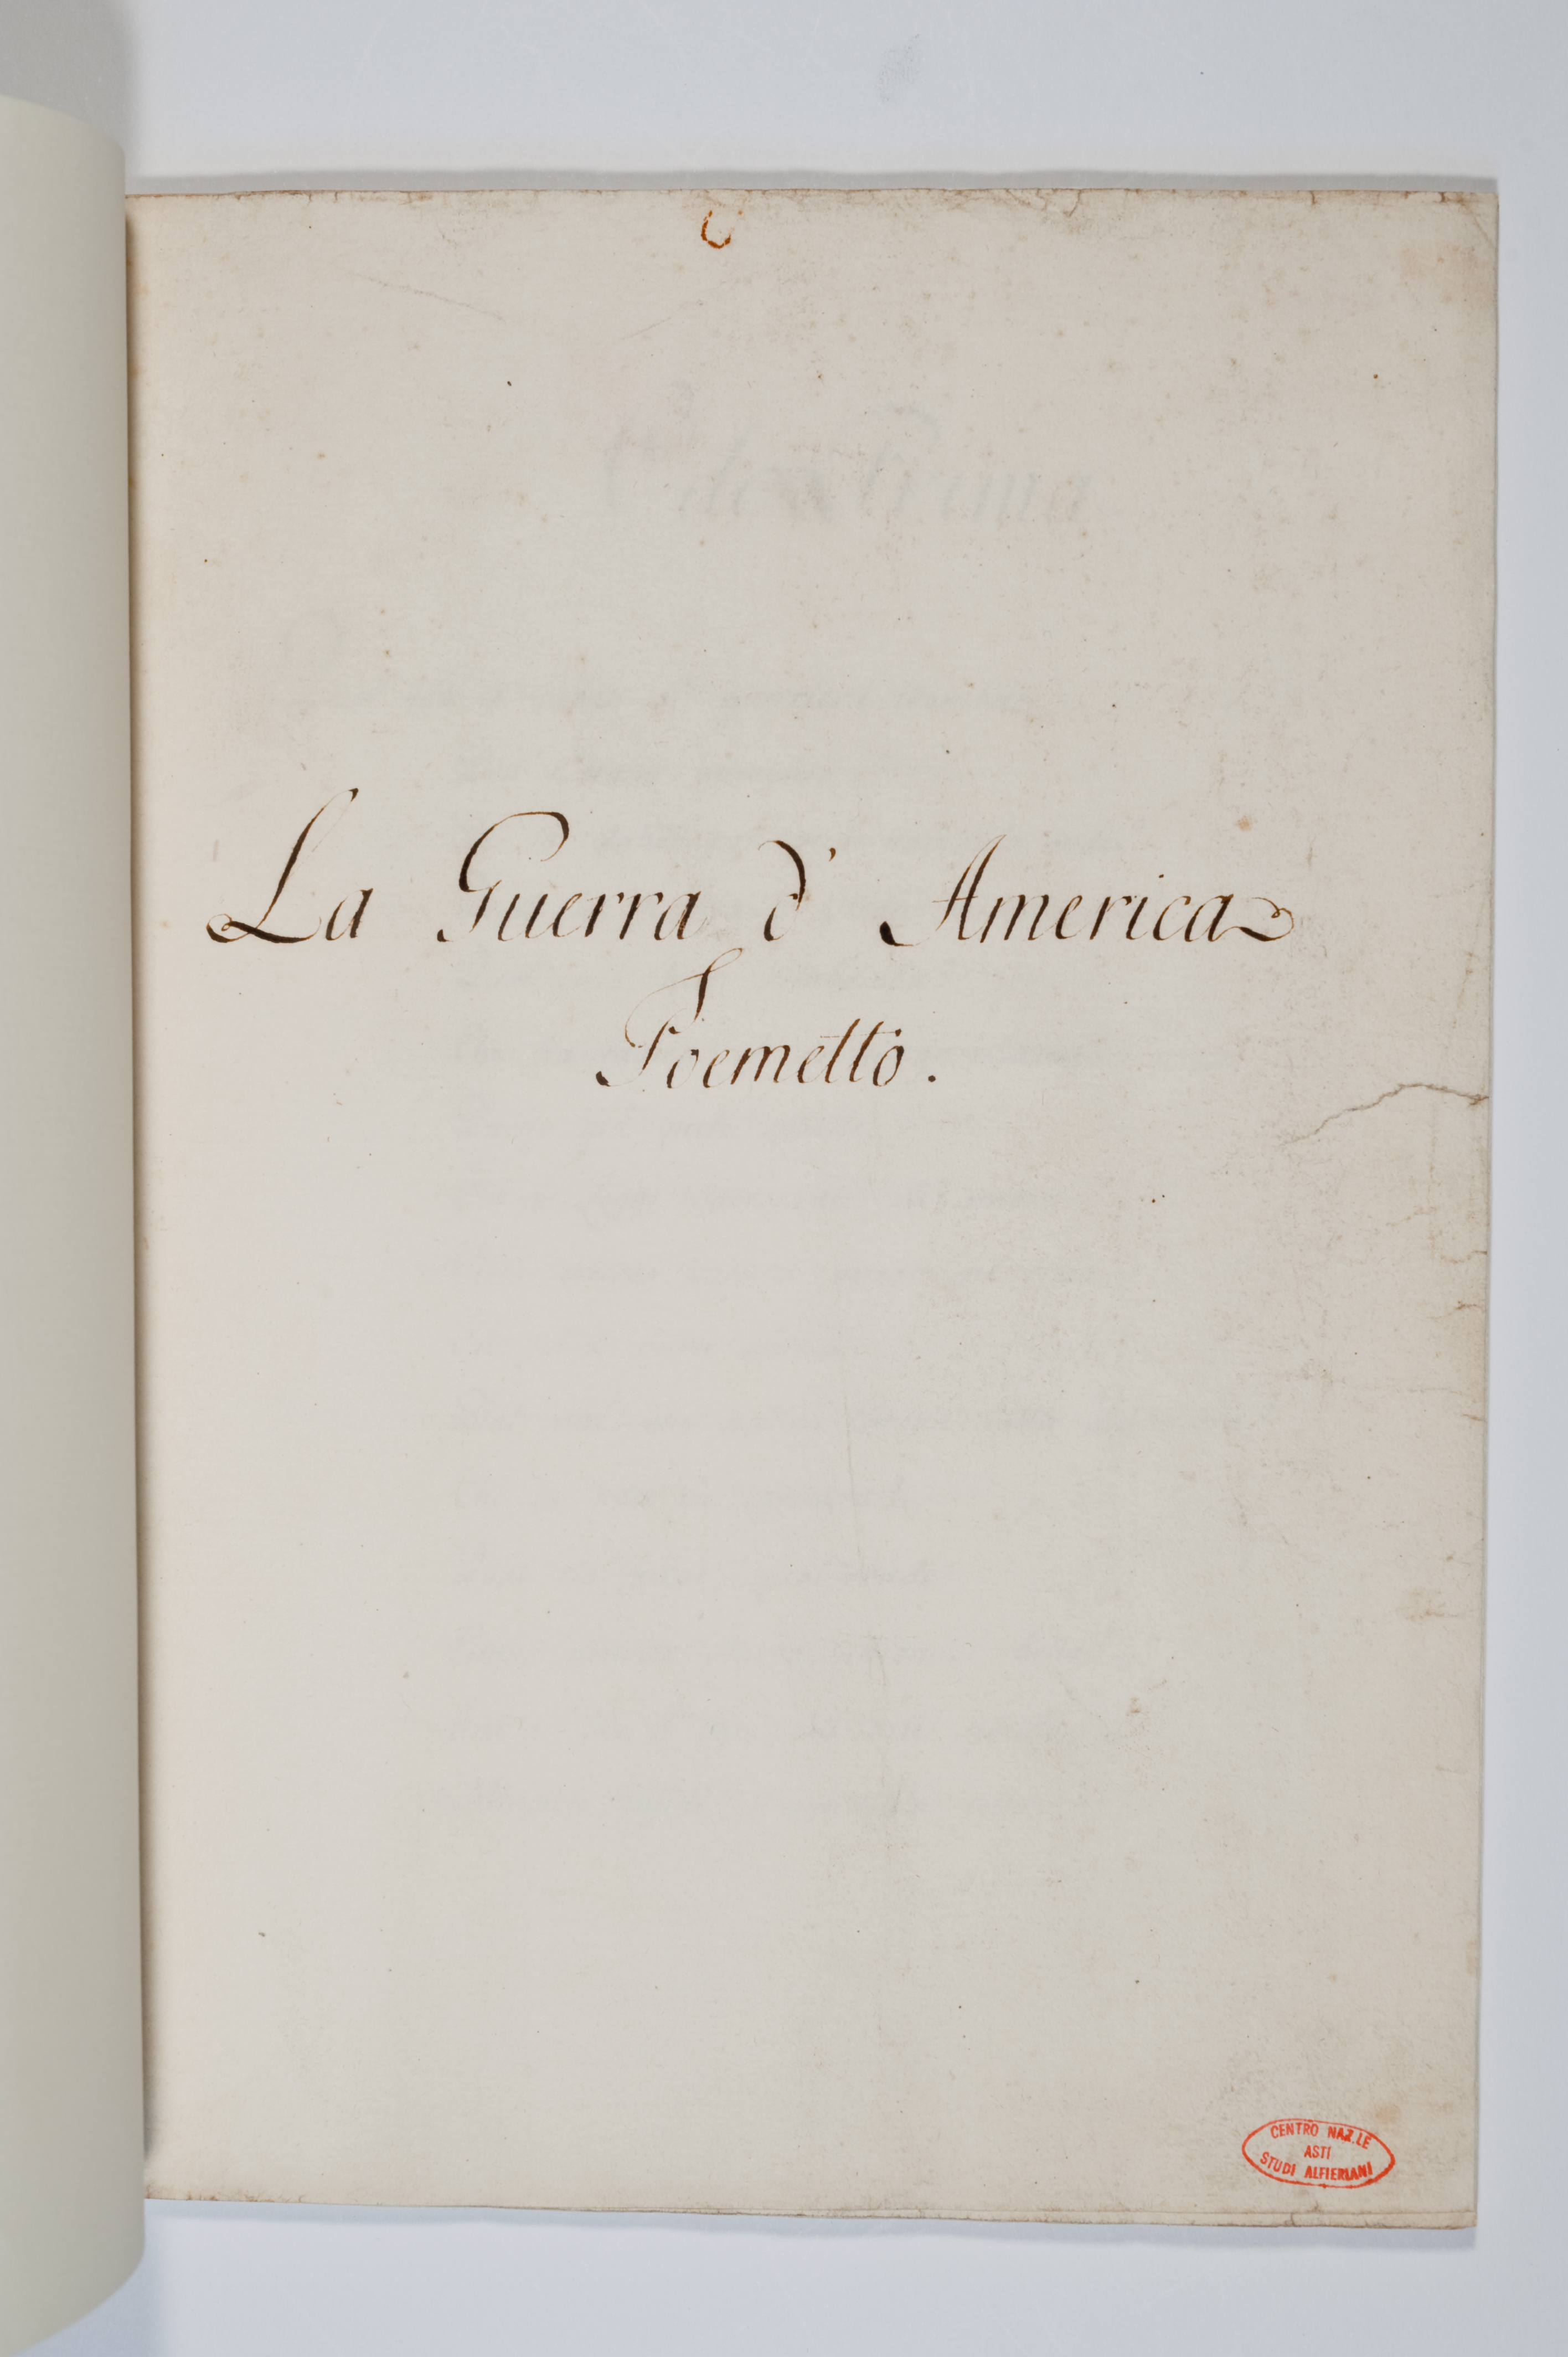 La Guerra d' America
Poemetto.
CENTRO NAZ.LE
ASTI
STUDI ALFIERIANI